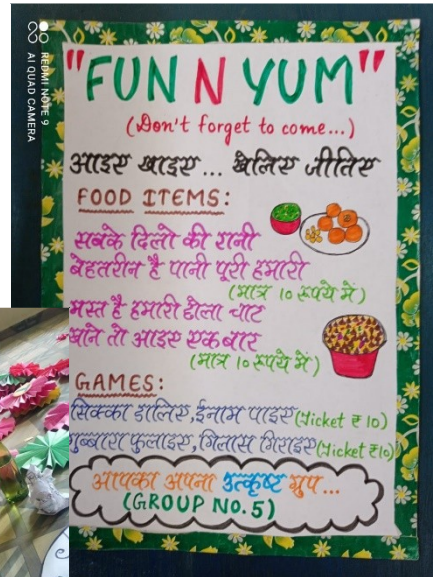 REDMI NOTE 9
AI QUAD CAMERA
"FUN N YUM"
(Don't forget to come...)
आइए खाइए... खेलिए जीतिए
FOOD ITEMS:
सबके दिलो की रानी
बेहतरीन है पानी पूरी हमारी
(मात्र 10 रूपये में)
मस्त है हमारी छोला चाट
खाने तो आइए एक बार
(मात्र 10 रूपये में)
GAMES:
सिक्का डालिए, ईनाम पाइए (Ticket ₹10)
गुब्बारा फुलाइए, गिलास गिराइए (Ticket ₹10)
आपका अपना उत्कृष्ट ग्रुप...
(GROUP NO.5)